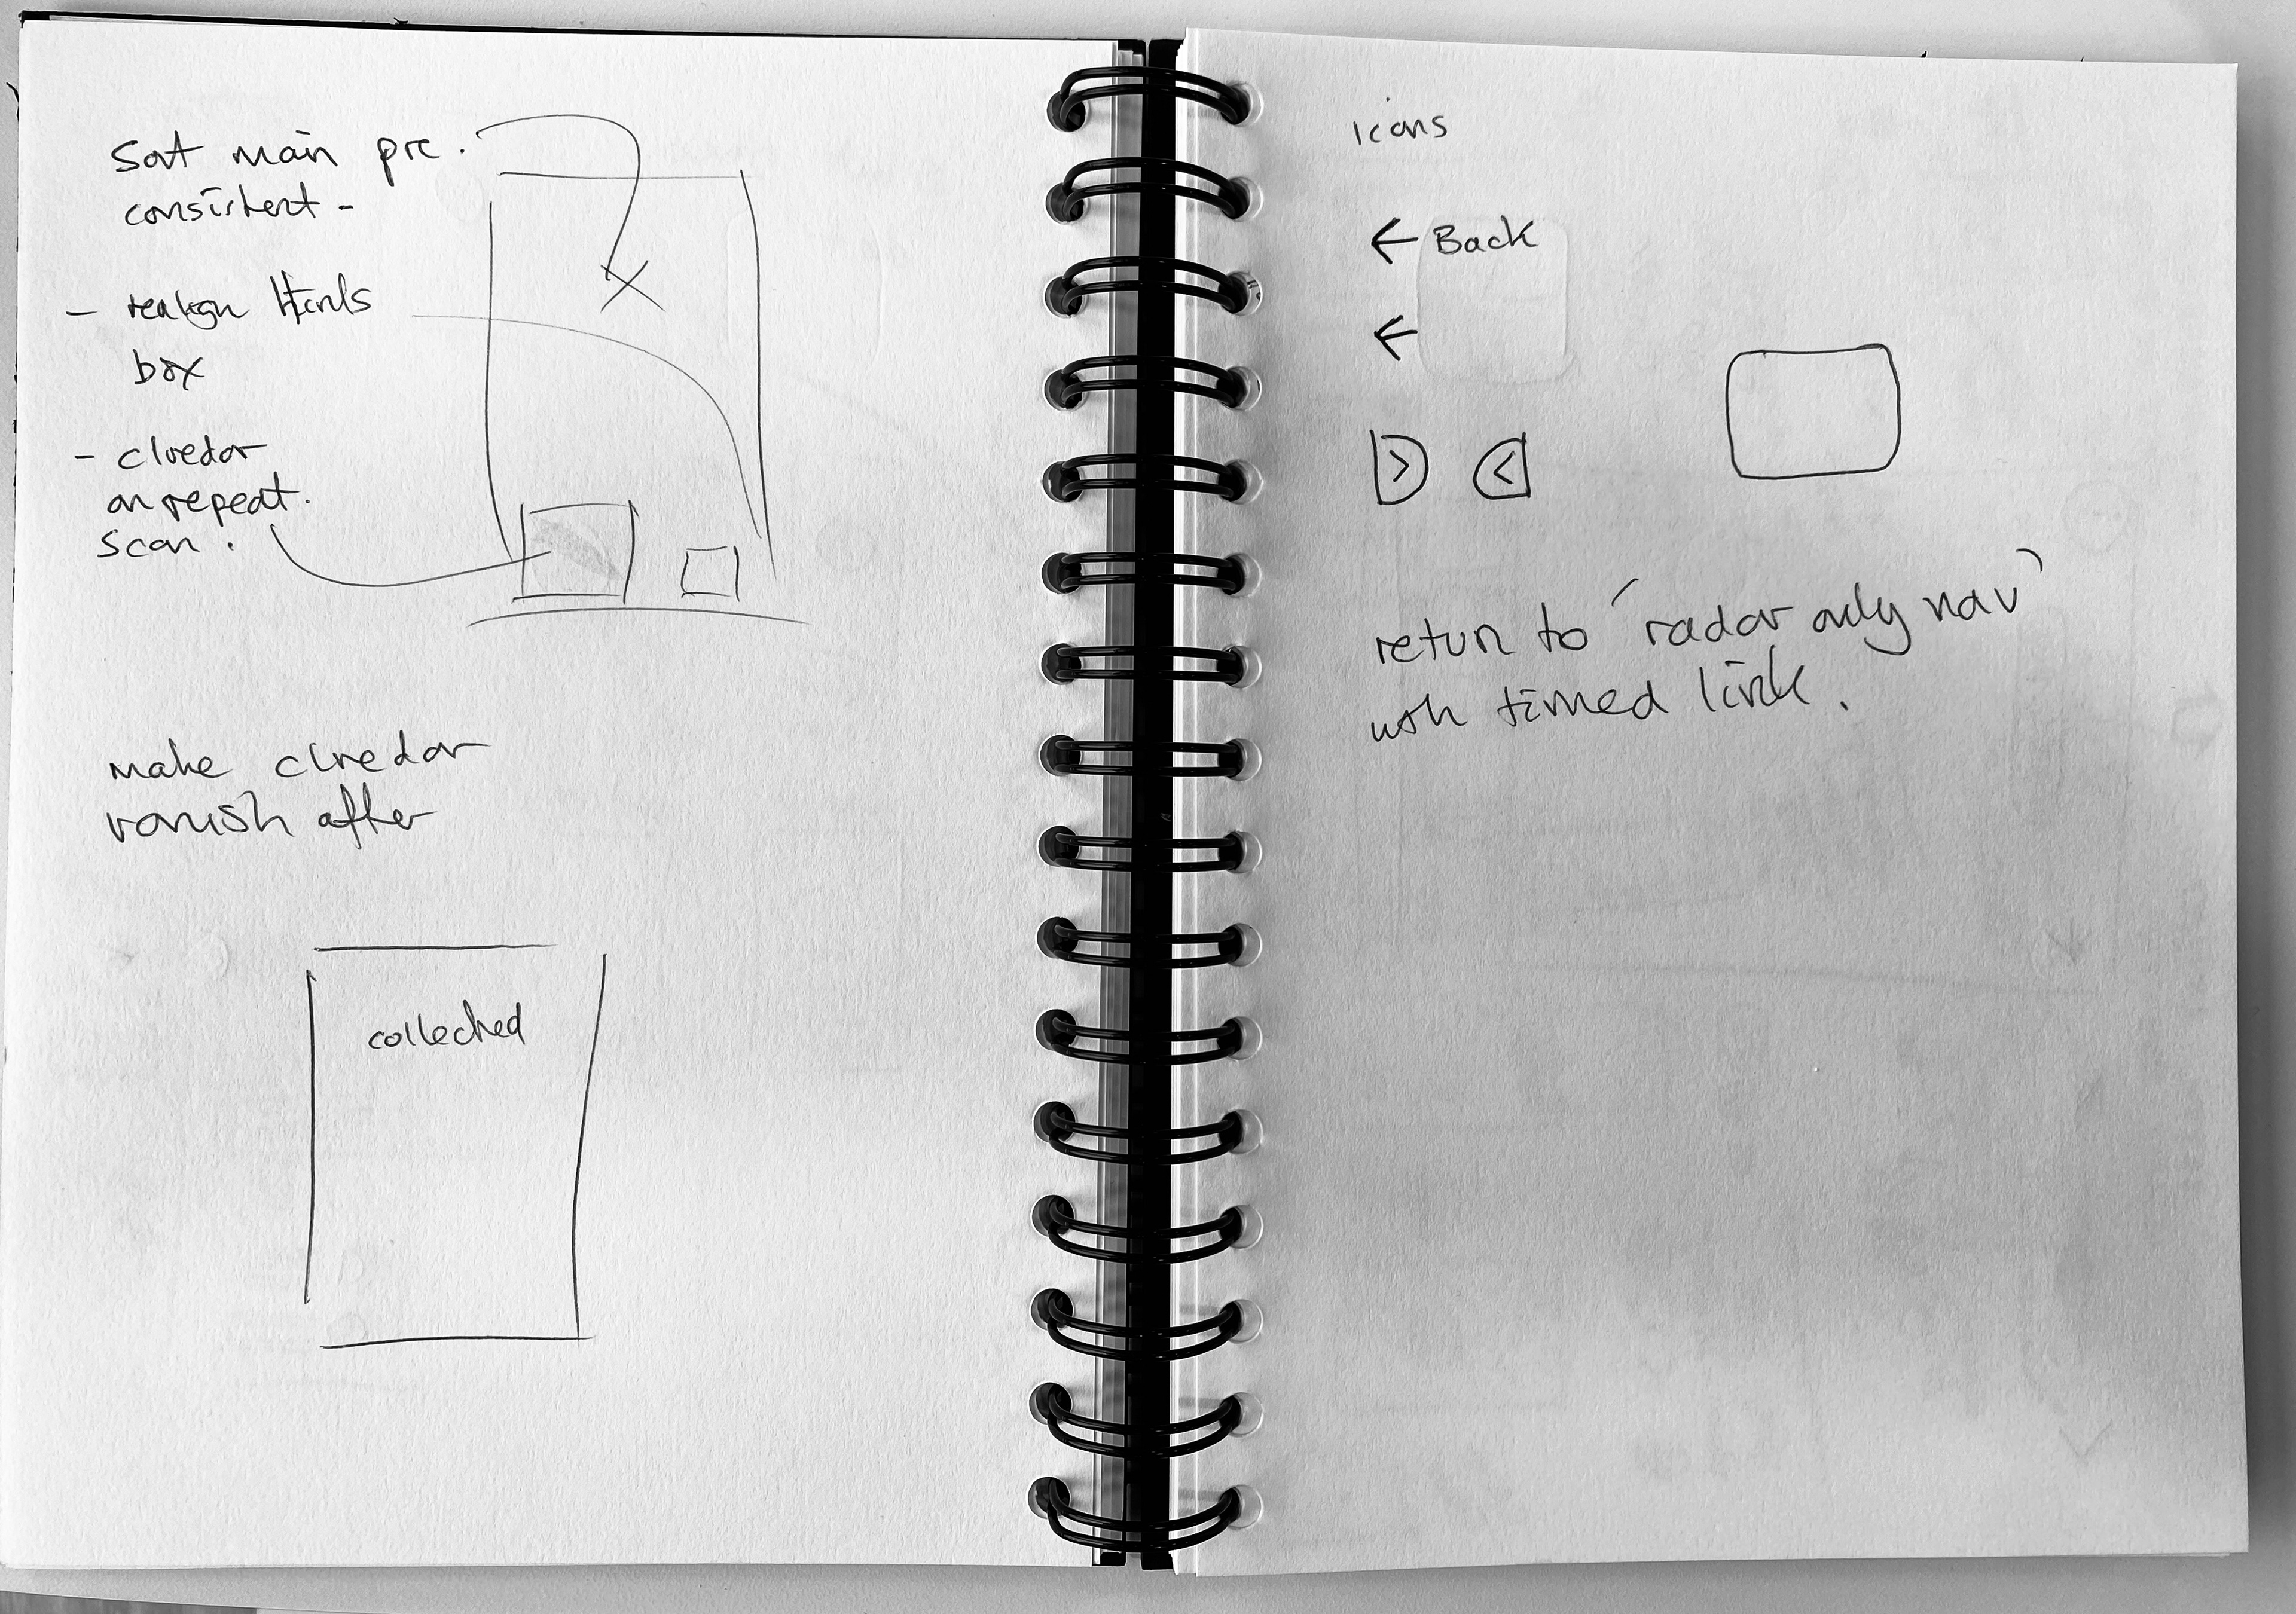 Sort main pic.
consistent -
- realign Hints
box
- cluedar
on repeat.
scan.
make cluedar
vanish after
collected
icons
← Back
←
> <
return to 'radar only nav'
with timed link.